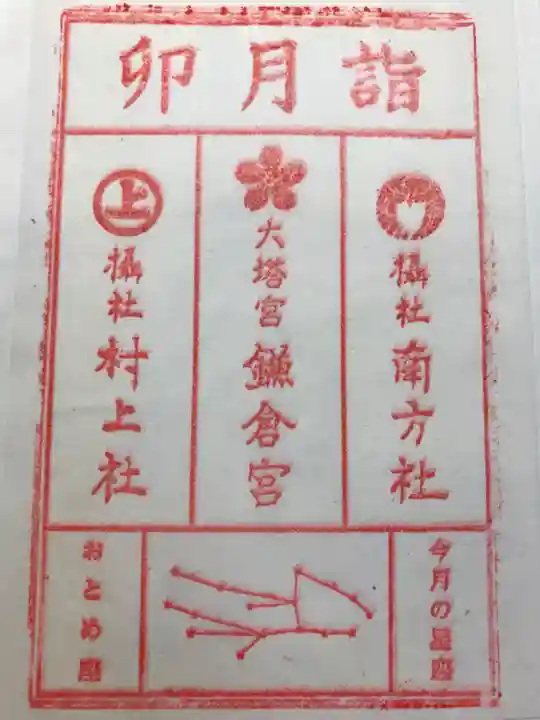 卯月詣
上
攝社村上社
大塔宮鎌倉宮
攝社南方社
おとめ座
今月の星座